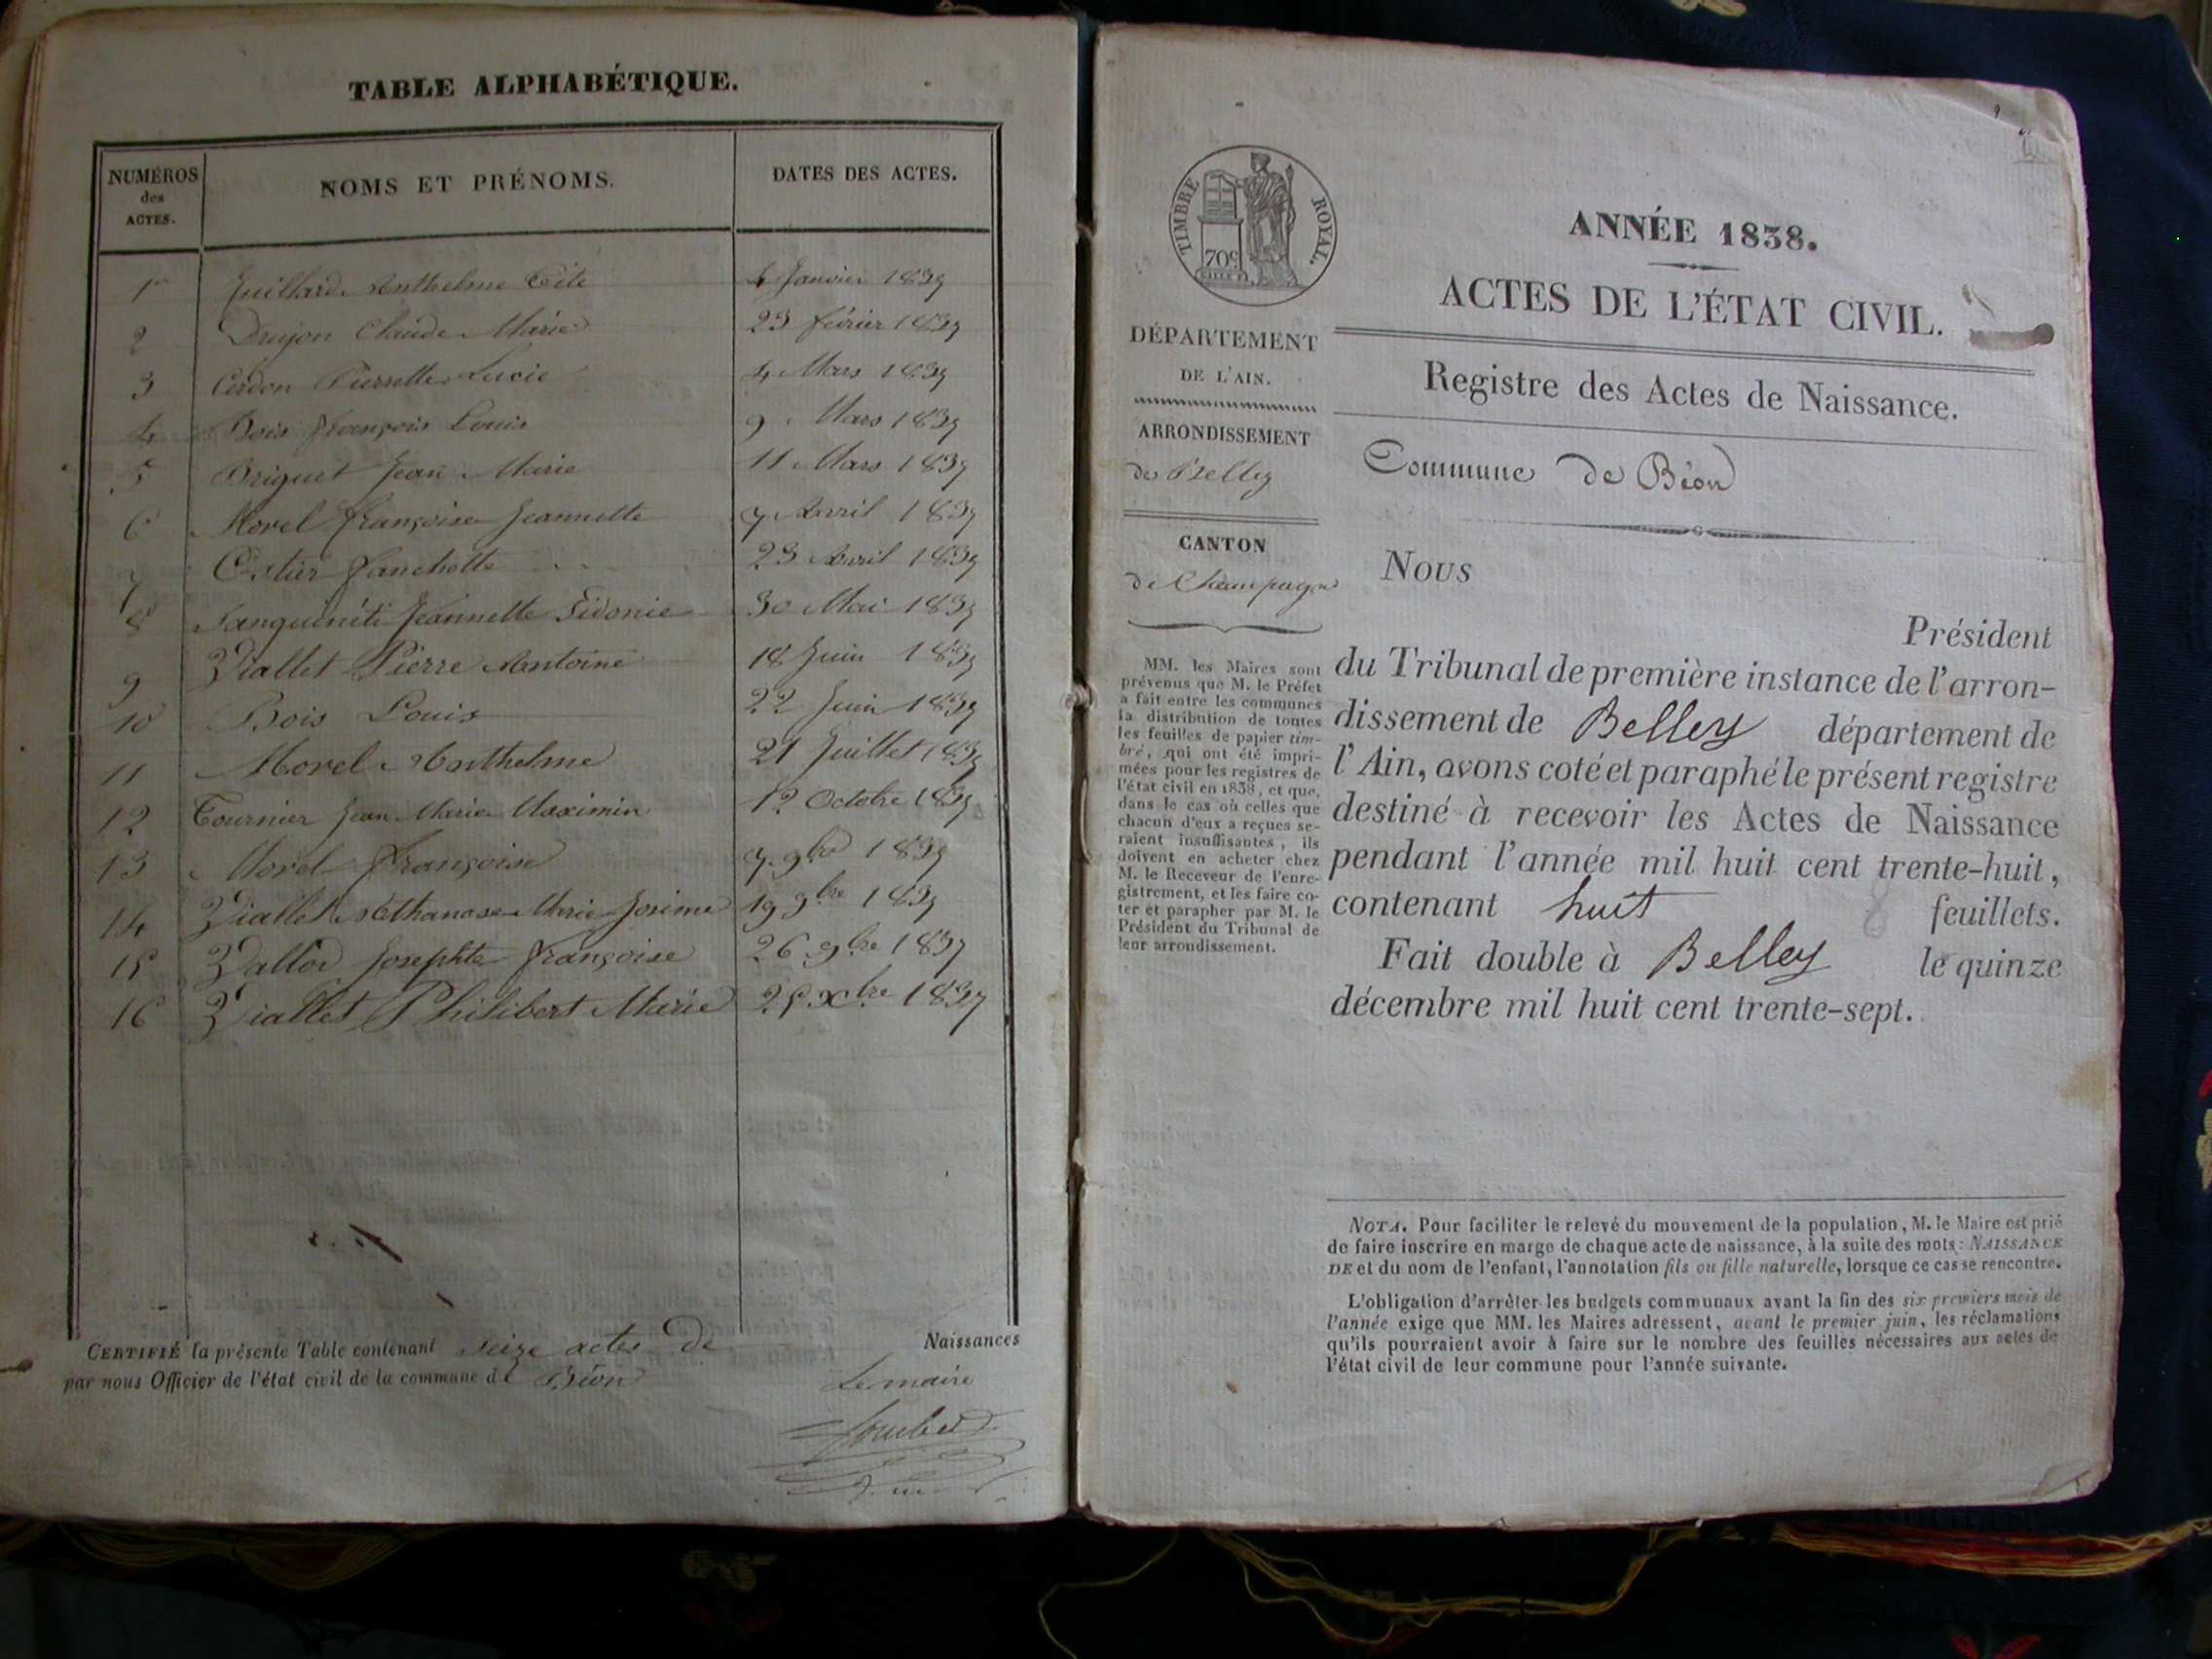 TABLE ALPHABÉTIQUE.
NUMÉROS des ACTES.
NOMS ET PRÉNOMS.
DATES DES ACTES.
1er Juillard Anthelme Tite 6 Janvier 1837
2 Drujon Claude Marie 23 février 1837
3 Cerdon Pierrette Lucie 4 Mars 1837
4 Bois François Louis 9 Mars 1837
5 Briguet Jean Marie 11 Mars 1837
6 Morel Françoise Jeannette 7 Avril 1837
7 Fanchette 23 Avril 1837
8 Jeannette Sidonie 30 Mai 1837
9 Viallet Pierre Antoine 18 Juin 1837
10 Bois Louis 22 Juin 1837
11 Morel Anthelme 21 Juillet 1837
12 Tournier Jean Marie Maximin 12 Octobre 1837
13 Morel Françoise 7 9bre 1837
14 Viallet Athanase Marie Josime 19 9bre 1837
15 Vallod Josephte Françoise 26 9bre 1837
16 Viallet Philibert Marie 25 Xbre 1837
CERTIFIÉ la présente Table contenant seize actes de Naissances
par nous Officier de l'état civil de la commune de Béon
Le maire
TIMBRE ROYAL.
70c
ANNÉE 1838.
ACTES DE L'ÉTAT CIVIL.
Registre des Actes de Naissance.
Commune de Béon
DÉPARTEMENT
DE L'AIN.
ARRONDISSEMENT
de Belley
CANTON
de Champagne
MM. les Maires sont
prévenus que M. le Préfet
a fait entre les communes
la distribution de toutes
les feuilles de papier tim-
bré, qui ont été impri-
mées pour les registres de
l'état civil en 1838, et que,
dans le cas où celles que
chacun d'eux a reçues se-
raient insuffisantes, ils
doivent en acheter chez
M. le Receveur de l'enre-
gistrement, et les faire co-
ter et parapher par M. le
Président du Tribunal de
leur arrondissement.
NOUS
Président
du Tribunal de première instance de l'arron-
dissement de Belley département de
l'Ain, avons coté et paraphé le présent registre
destiné à recevoir les Actes de Naissance
pendant l'année mil huit cent trente-huit,
contenant huit 8 feuillets.
Fait double à Belley le quinze
décembre mil huit cent trente-sept.
NOTA. Pour faciliter le relevé du mouvement de la population, M. le Maire est prié
de faire inscrire en marge de chaque acte de naissance, à la suite des mots: NAISSANCE
DE et du nom de l'enfant, l'annotation fils ou fille naturelle, lorsque ce cas se rencontre.
L'obligation d'arrêter les budgets communaux avant la fin des six premiers mois de
l'année exige que MM. les Maires adressent, avant le premier juin, les réclamations
qu'ils pourraient avoir à faire sur le nombre des feuilles nécessaires aux actes de
l'état civil de leur commune pour l'année suivante.